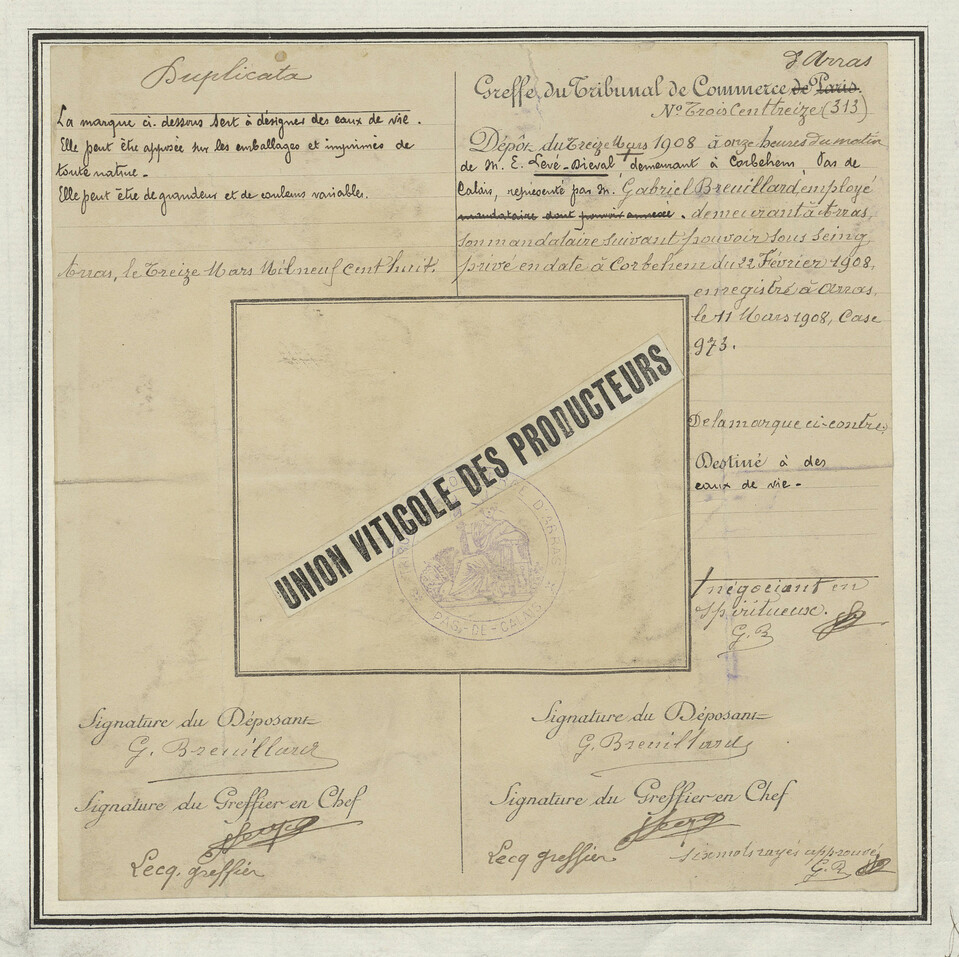 Duplicata
La marque ci-dessous sert à désigner des eaux de vie.
Elle peut être apposée sur les emballages et imprimés de
toute nature.
Elle peut être de grandeur et de couleurs variables.
Arras, le Treize Mars Mil neuf cent huit.
d'Arras
Greffe du Tribunal de Commerce de Paris.
No Trois Cent treize (313)
Dépôt du Treize Mars 1908 à onze heures du matin
de M. E. Levé-Bieval demeurant à Corbehem, Pas de
Calais, représenté par M. Gabriel Breuillard, employé
mandataire dont pouvoir annexé. demeurant à Arras,
son mandataire suivant pouvoir sous seing
privé en date à Corbehem du 22 Février 1908,
enregistré à Arras,
le 11 Mars 1908, Case
973.
De la marque ci-contre
Destiné à des
eaux de vie-
UNION VITICOLE DES PRODUCTEURS
D'ARRAS
PAS-DE-CALAIS
négociant en
spiritueux.
G. B
Signature du Déposant
G. Breuillard
Signature du Greffier en Chef
Lecq. greffier
Signature du Déposant
G. Breuillard
Signature du Greffier en Chef
Lecq greffier
six mots rayés approuvés
G. B